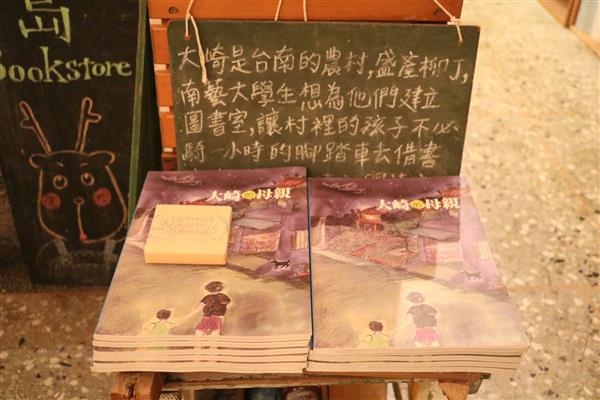 島
bookstore
大崎是台南的農村,盛產柳丁,
南藝大學生想為他們建立
圖書室,讓村裡的孩子不必
騎一小時的腳踏車去借書
大崎的母親
大崎的母親